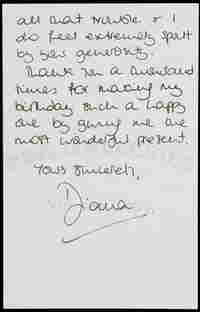 all that trouble & I
do feel extremely spoilt
by your generosity.
Thank you a thousand
times for making my
birthday such a happy
one by giving me the
most wonderful present.
Yours sincerely,
Diana